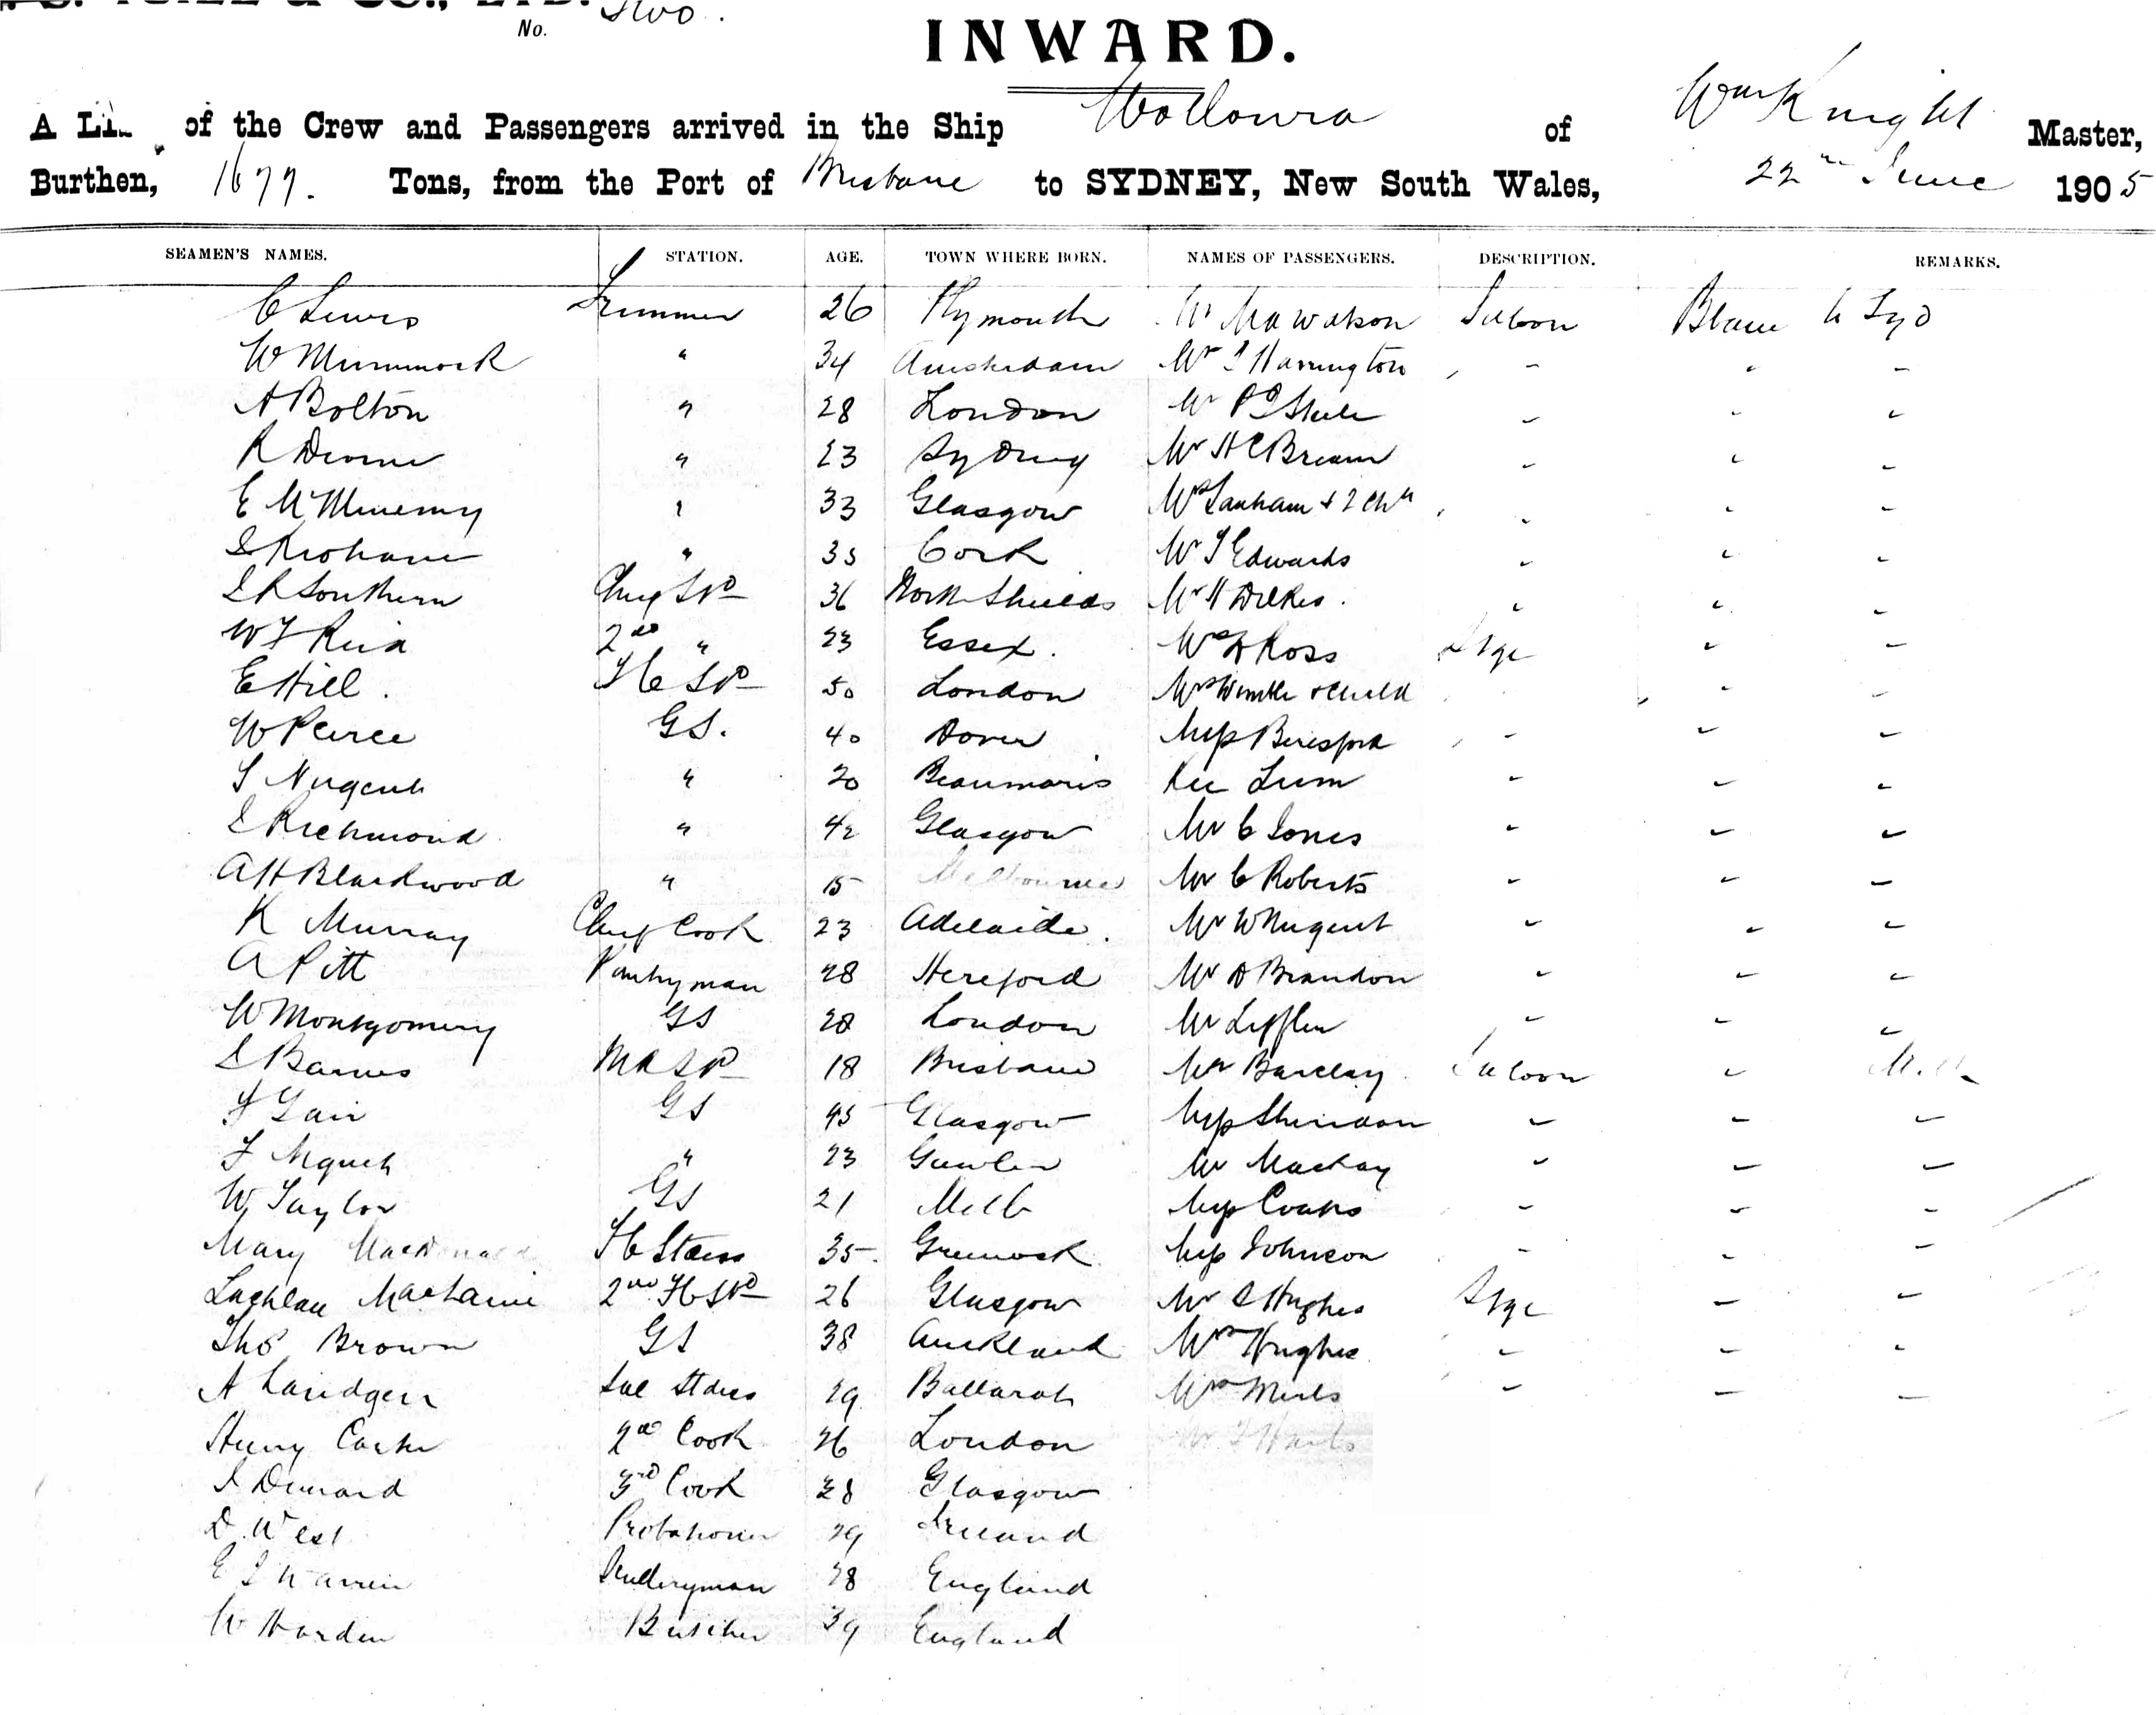 & CO., LTD.
No. Two.
INWARD.
A Li of the Crew and Passengers arrived in the Ship Wollowra of Wm Knight Master,
Burthen, 1677. Tons, from the Port of Brisbane to SYDNEY, New South Wales, 22nd June 1905
SEAMEN'S NAMES. STATION. AGE. TOWN WHERE BORN. NAMES OF PASSENGERS. DESCRIPTION. REMARKS.
C Lewis Trimmer 26 Plymouth Mr Watson Saloon Bbane to Syd
W " 34 Amsterdam Mr Harrington
A Bolton " 28 London Mr Steele
R " 23 Sydney Mr H C
E " 33 Glasgow Mrs Lanham & 2 Chn
" 35 Cork Mr Edwards
Southern Chief Std 36 North Shields Mr H Dilkes.
W Reid 2nd " 23 Essex. Ross Stge
E Hill. F C Std 50 London Mrs & Child
W Peirce G S. 40 Dover Miss Beresford
Nugent " 20 Beaumaris Lum
Richmond " 42 Glasgow Mr C Jones
A H Blackwood " 15 Melbourne Mr C Roberts
K Murray Chief Cook 23 Adelaide. Mr W Nugent
A Pitt Pantryman 28 Hereford Mr D Brandon
W Montgomery G S 28 London Mr
Barnes 18 Brisbane Mr Barclay Saloon
Gair G S 45 Glasgow Miss Sheridan
" 23 Gawler Mr Mackay
W Taylor G S 21 Melb Miss
Mary MacDonald F C Stdess 35 Greenock Miss Johnson
Lachlan Maclaine 2nd F C Std 26 Glasgow Mr Hughes Stge
Thos Brown G S 38 Auckland Mrs Hughes
A Sal Stdess 29 Ballarat Mrs
Henry Carter 2nd Cook 26 London
3rd Cook 28 Glasgow
D. West Probationer 29 Ireland
E Warren Sculleryman 28 England
W Harden Butcher 39 England